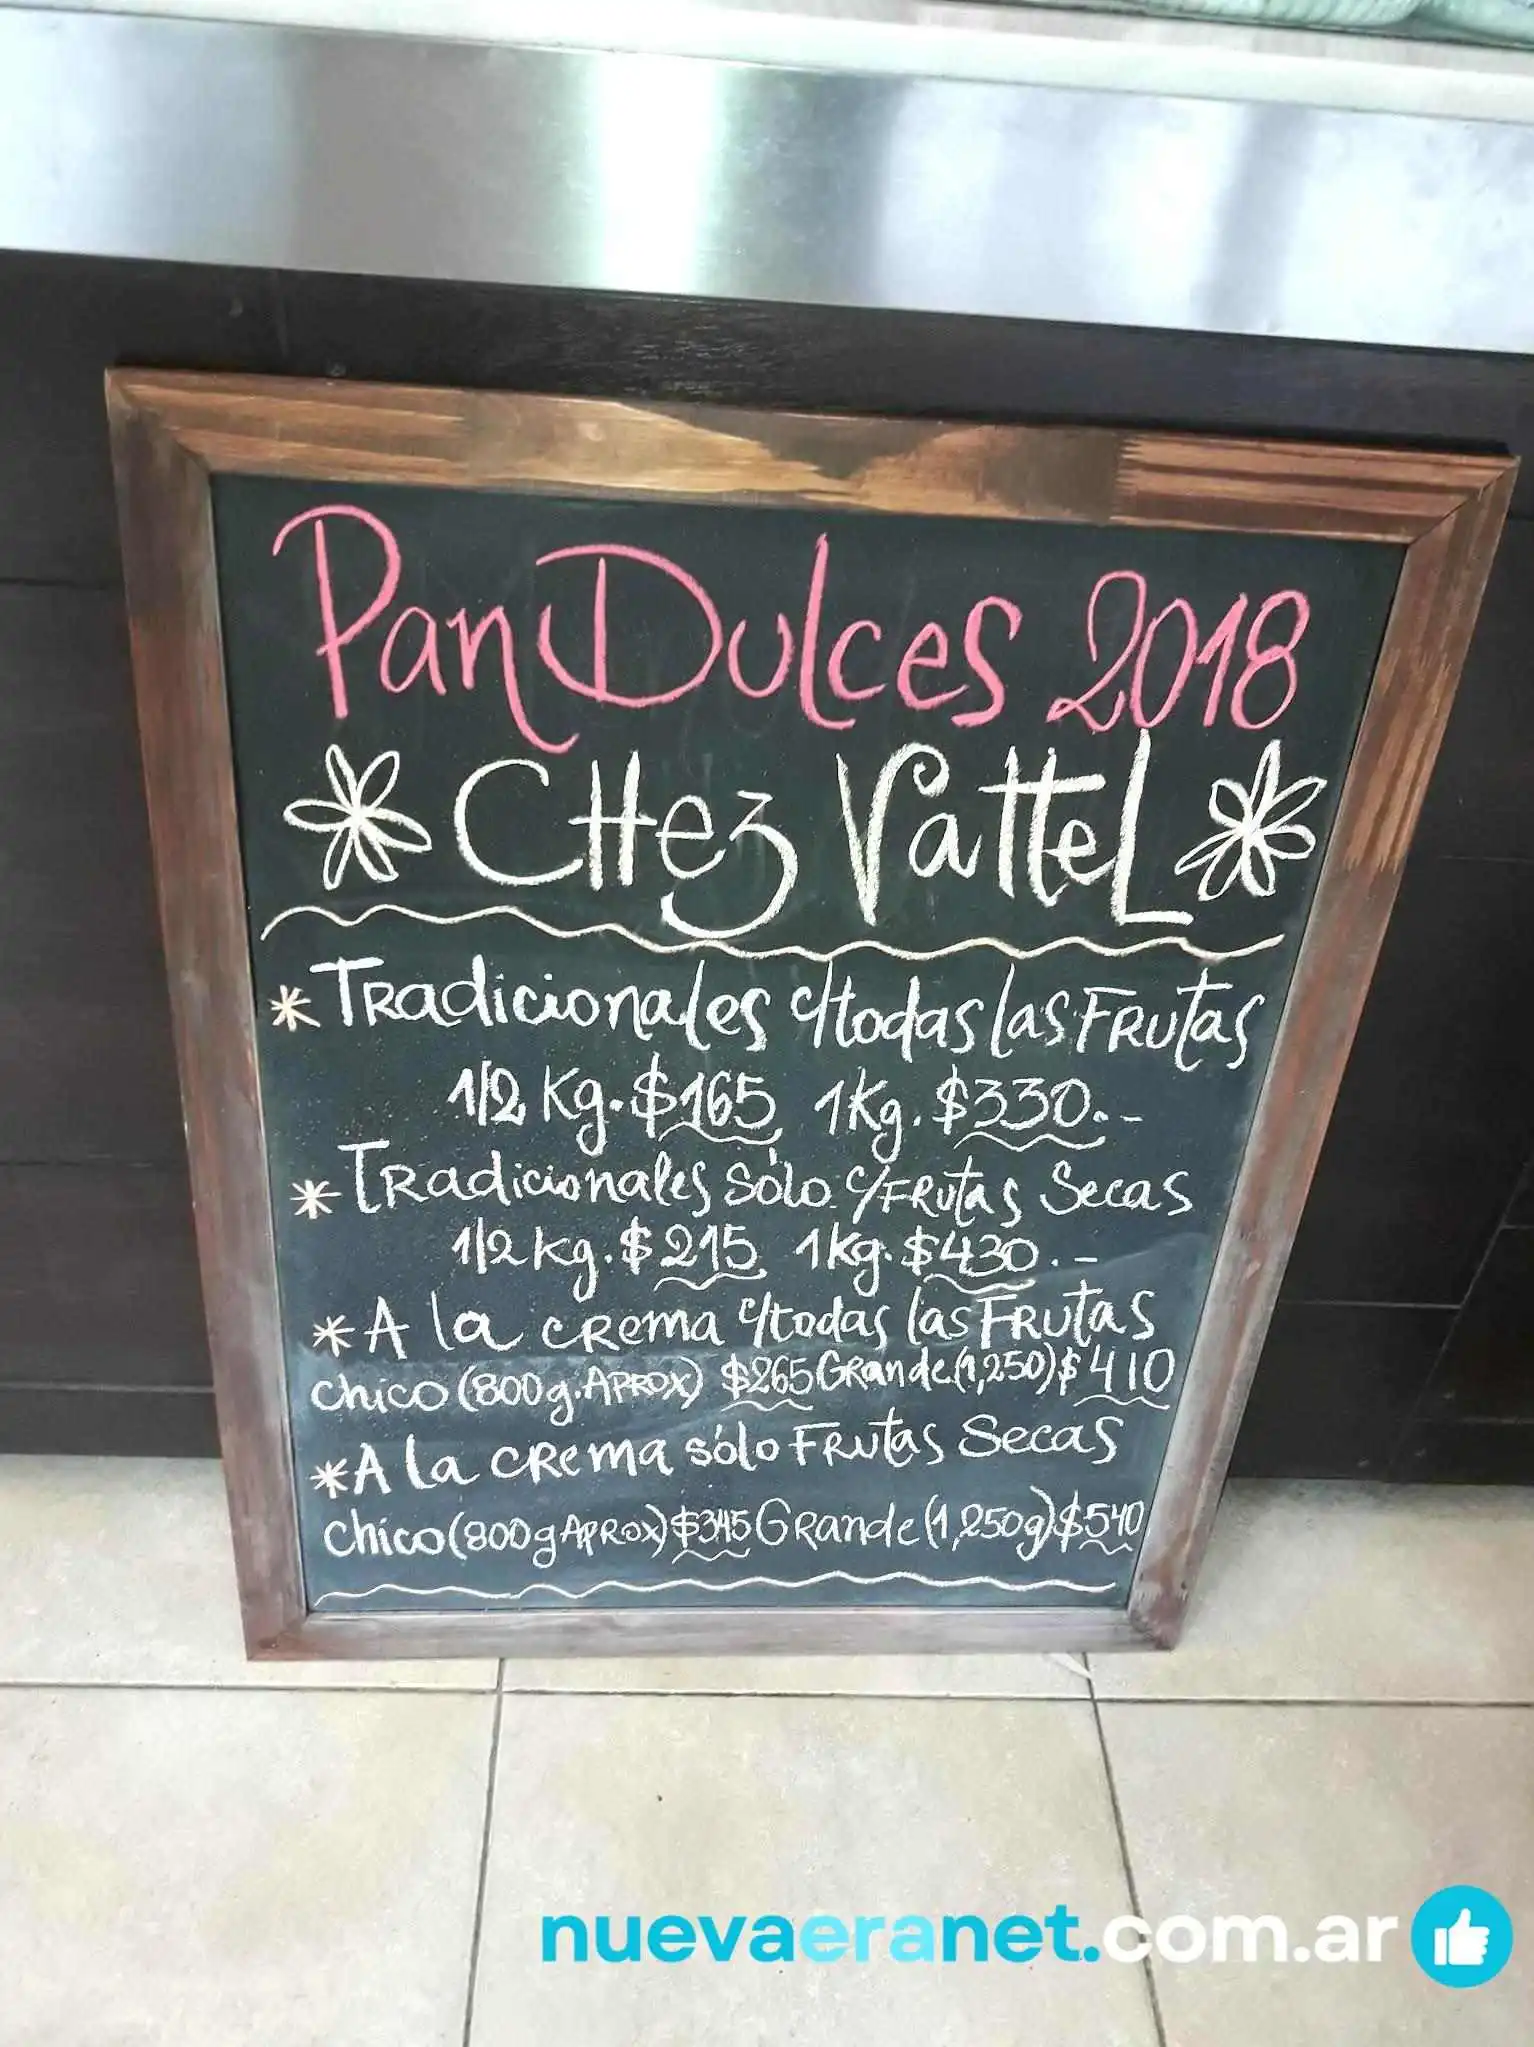 PanDulces 2018
CHez VatteL
* Tradicionales c/todas las Frutas
1/2 Kg. $165 1Kg. $330.-
* Tradicionales sólo c/Frutas Secas
1/2 kg. $215 1kg. $430.-
* A la crema c/todas las Frutas
chico (800g. Aprox) $265 Grande (1,250) $410
* A la crema sólo Frutas Secas
chico (800g Aprox) $345 Grande (1,250g) $540
nuevaeranet.com.ar